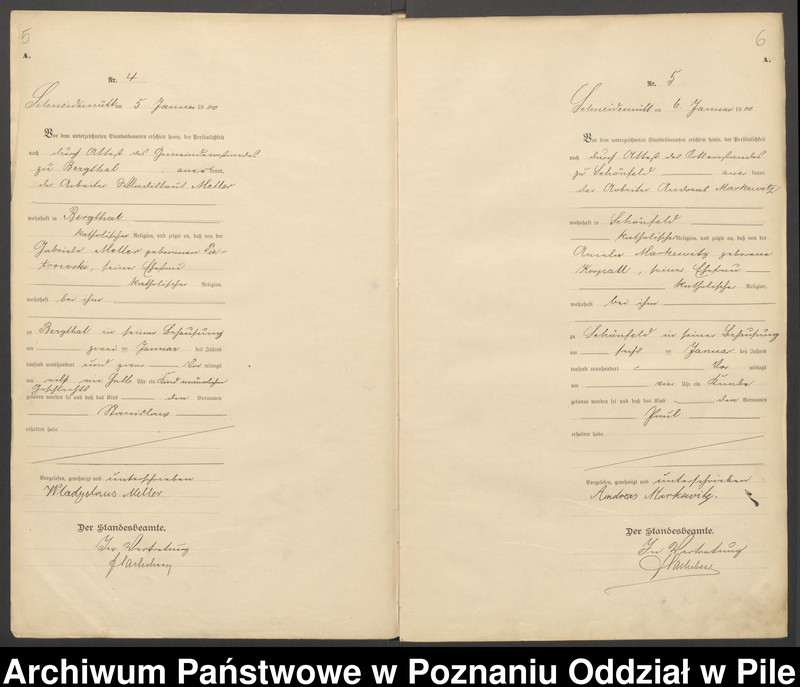 5
A.
Nr. 4
Schneidemühl am 5 Januar 1900
Vor dem unterzeichneten Standesbeamten erschien heute, der Persönlichkeit
nach durch Attest des Gemeindevorstandes
zu Bergthal anerkannt,
der Arbeiter Wladislaus Meller
wohnhaft in Bergthal
katholischer Religion, und zeigte an, daß von der
Gabriele Meller geborenen
seine Ehefrau
katholischer Religion,
wohnhaft bei ihm
zu Bergthal in seiner Behausung
am zwei ten Januar des Jahres
tausend neunhundert und zwar Vor mittags
um elf ein halb Uhr ein Kind männlichen
Geschlechts
geboren worden sei und daß das Kind den Vornamen
Stanislaus
erhalten habe.
Vorgelesen, genehmigt und unterschrieben
Wladyslaus Meller
Der Standesbeamte.
In Vertretung
6
A.
Nr. 5
Schneidemühl am 6 Januar 1900
Vor dem unterzeichneten Standesbeamten erschien heute, der Persönlichkeit
nach durch Attest des Ortsvorstandes
zu Schönfeld aner kannt,
der Arbeiter Andreas Markewitz
wohnhaft in Schönfeld
katholischer Religion, und zeigte an, daß von der
Markewitz geborene
seiner Ehefrau
katholischer Religion,
wohnhaft bei ihm
zu Schönfeld in seiner Behausung
am sechs ten Januar des Jahres
tausend neunhundert Vor mittags
um vier Uhr ein Knabe
geboren worden sei und daß das Kind den Vornamen
Paul
erhalten habe.
Vorgelesen, genehmigt und unterschrieben
Andreas Markewitz.
Der Standesbeamte.
In Vertretung
Archiwum Państwowe w Poznaniu Oddział w Pile